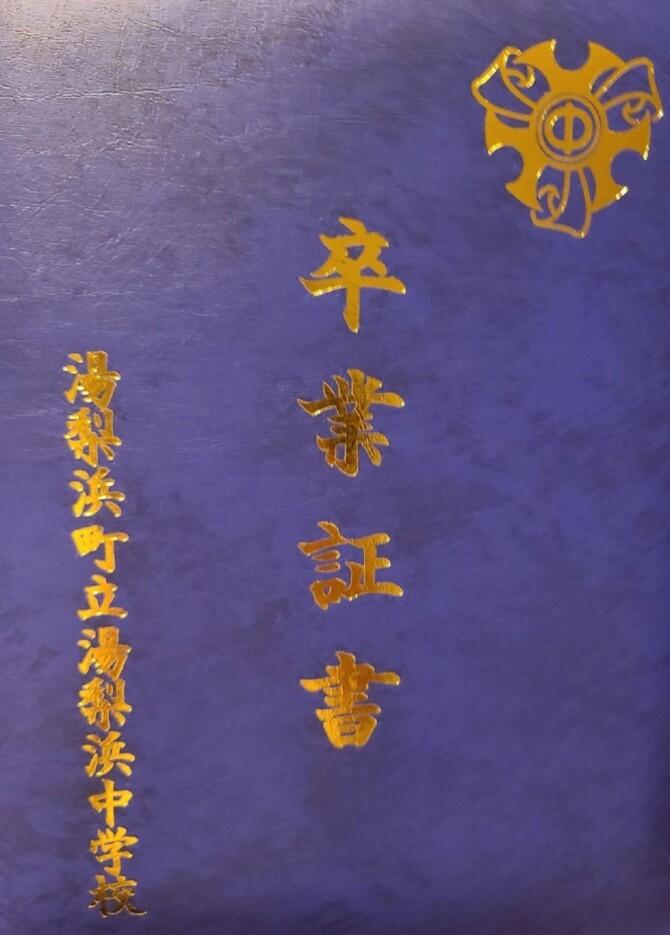 中
卒業証書
湯梨浜町立湯梨浜中学校